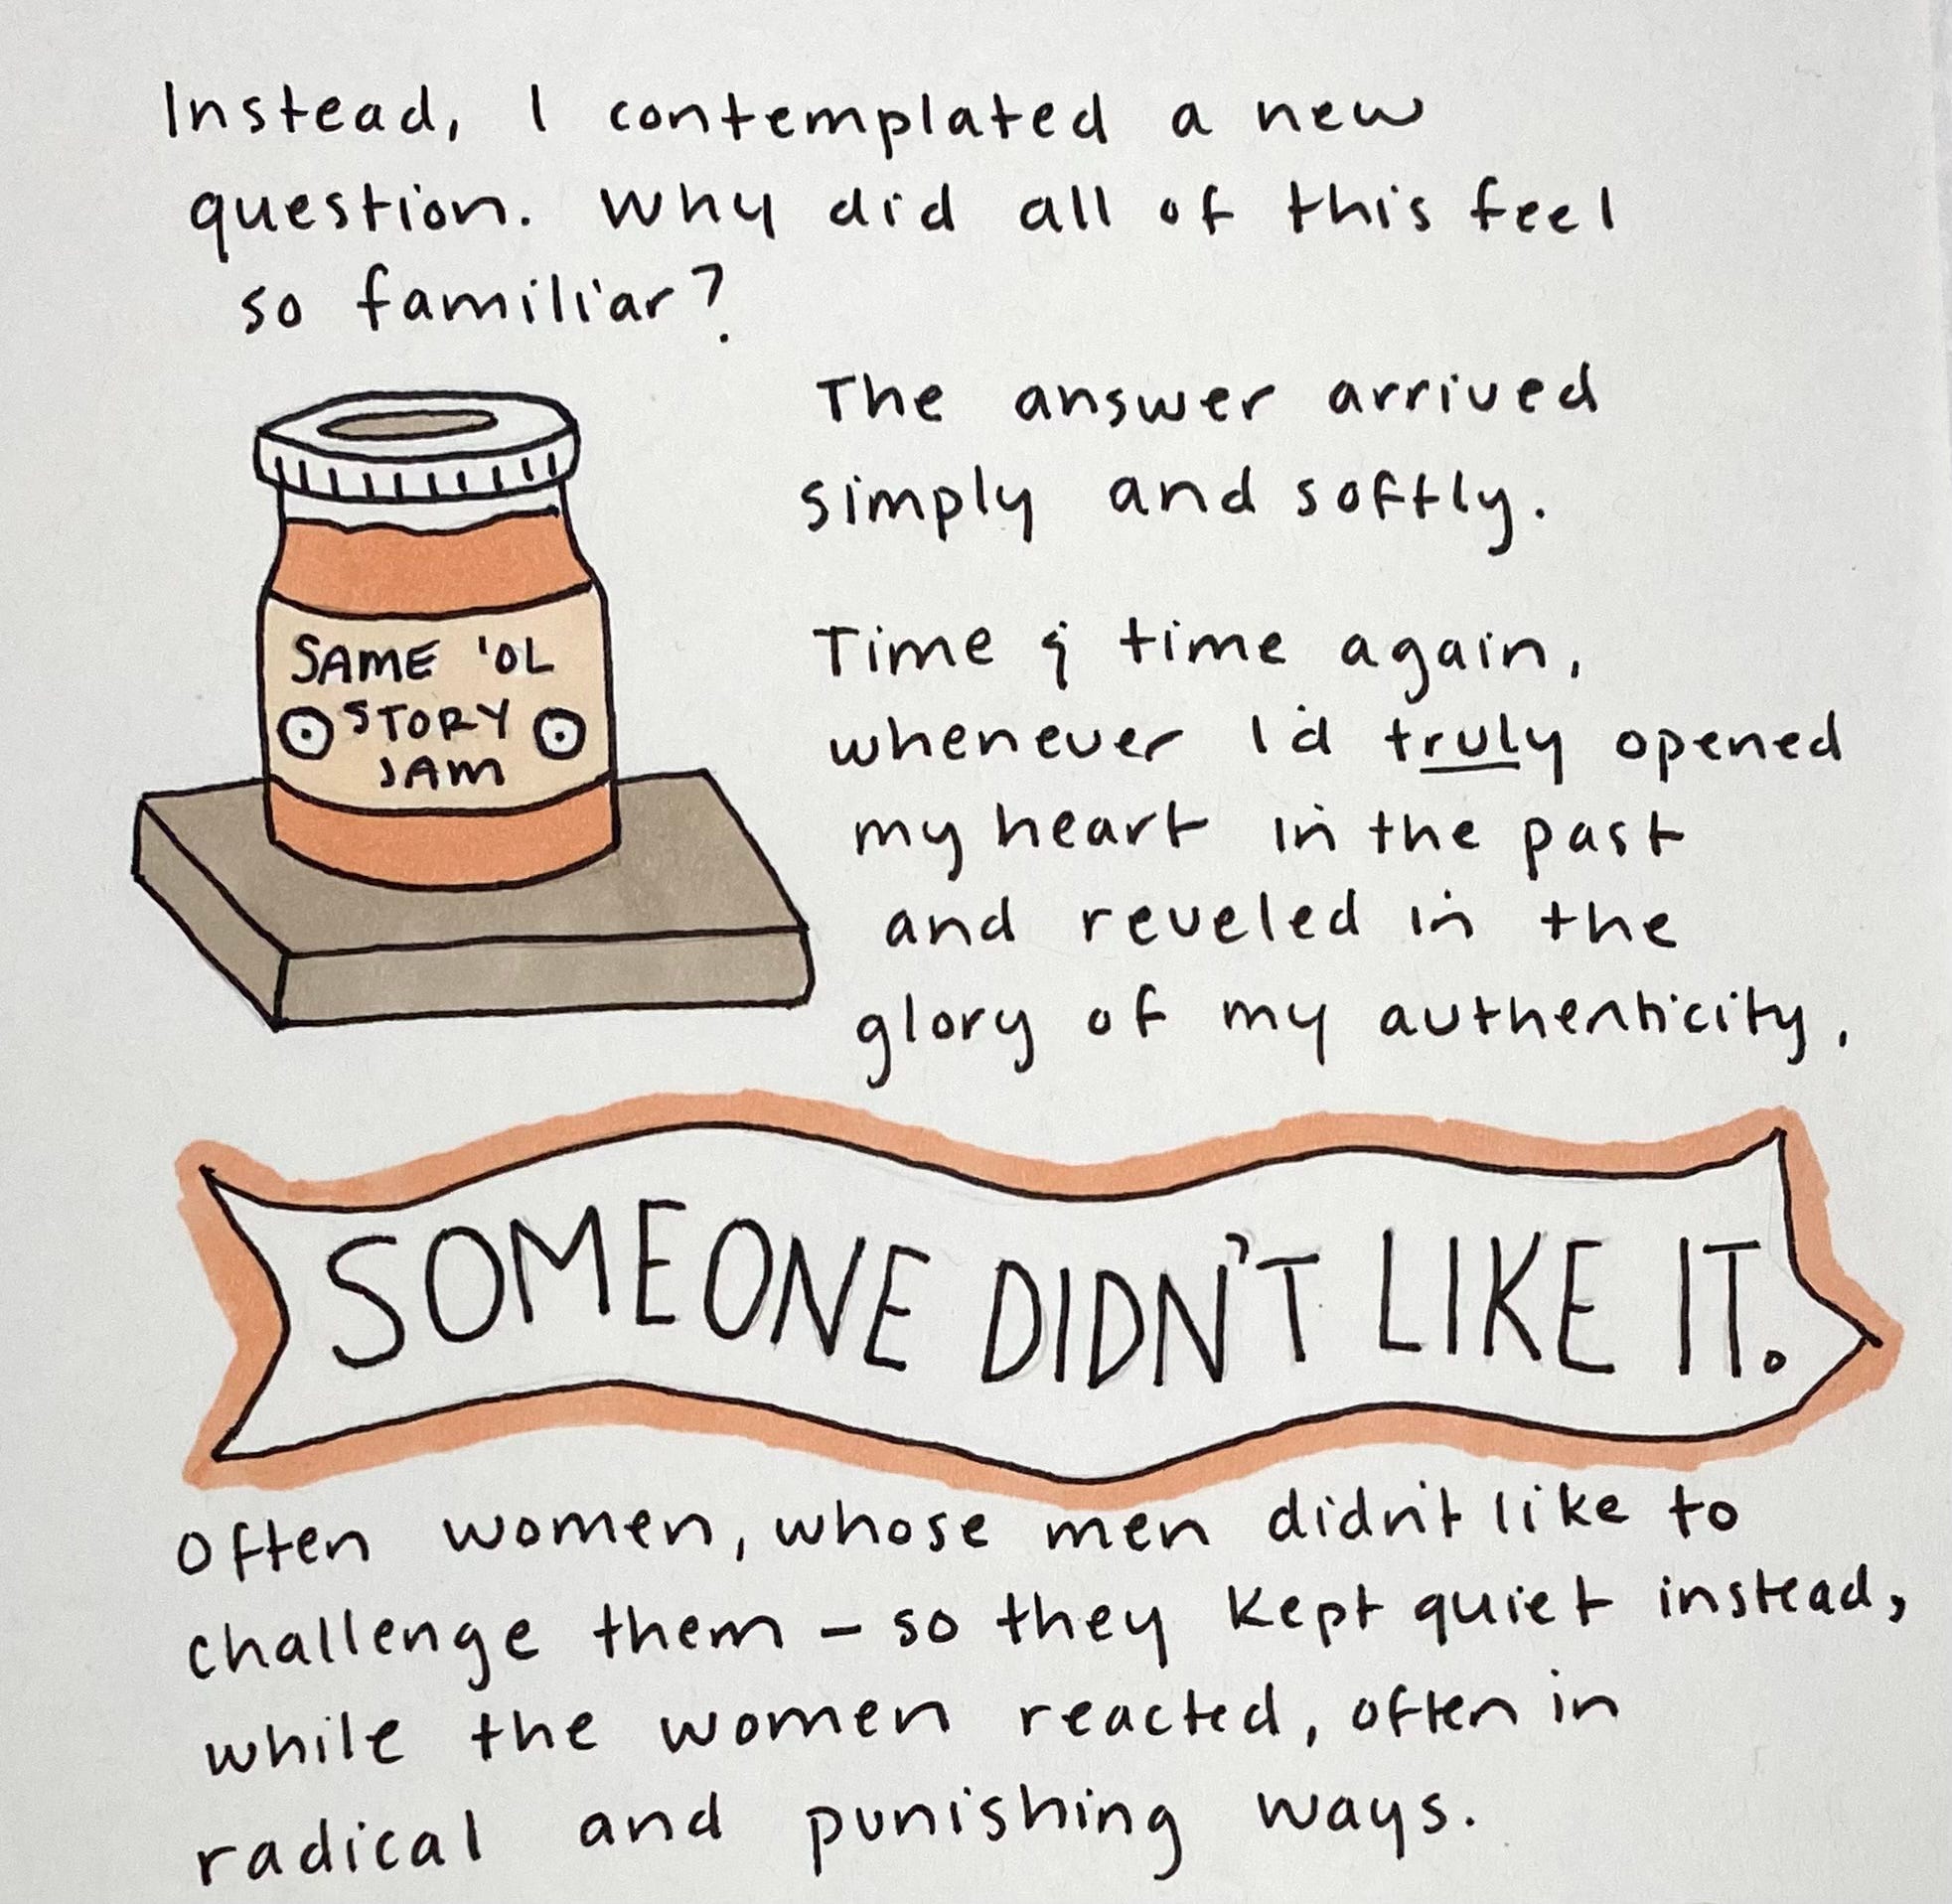 Instead, I contemplated a new
question. Why did all of this feel
so familiar?
SAME 'OL
STORY
JAM
The answer arrived
simply and softly.
Time & time again,
whenever I'd truly opened
my heart in the past
and reveled in the
glory of my authenticity,
SOMEONE DIDN'T LIKE IT.
Often women, whose men didn't like to
challenge them – so they kept quiet instead,
while the women reacted, often in
radical and punishing ways.